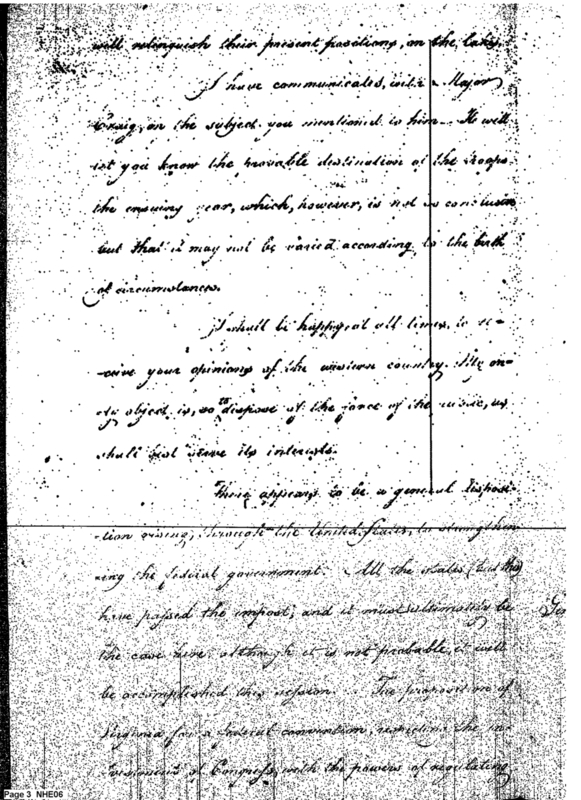 will relinquish their present positions, on the lakes.
I have communicated, with Major
Craig, on the subject you mentioned to him. He will
let you know the movable destination of the troops
the ensuing year, which, however, is not so conclusive
but that it may not be varied according to the birth
of circumstances.
I shall be happy at all times, to re-
-ceive your opinions of the western country. My on-
-ly object is, so to dispose of the force of the union, as
shall best serve its interests.
There appears to be a general disposi-
-tion rising, through the United States, to strengthen
-ing the federal government. All the states (but this)
have passed the impost; and it must ultimately be
the case here, although it is not probable, it will
be accomplished this session. The proposition of
Virginia for a federal convention, respecting the in-
-vestment of Congress, with the powers of regulating
Page 3 NHE06